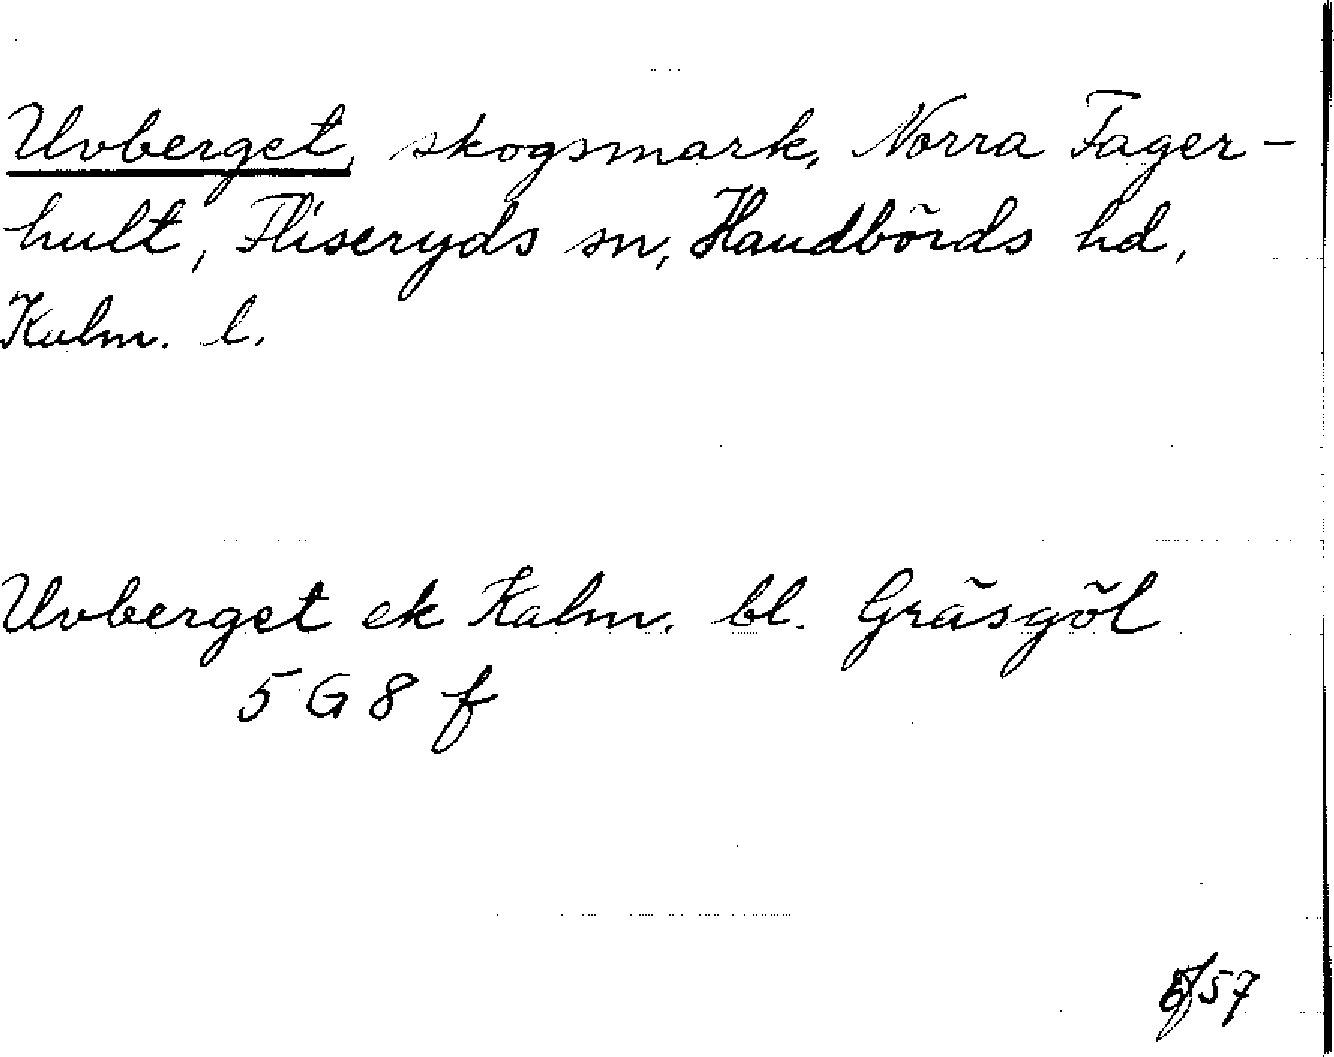 Uvberget, skogsmark, Norra Fager-
hult, Fliseryds sn, Handbörds hd,
Kalm. l.
Uvberget ek Kalm. bl. Gräsgöl
5 G 8 f
57